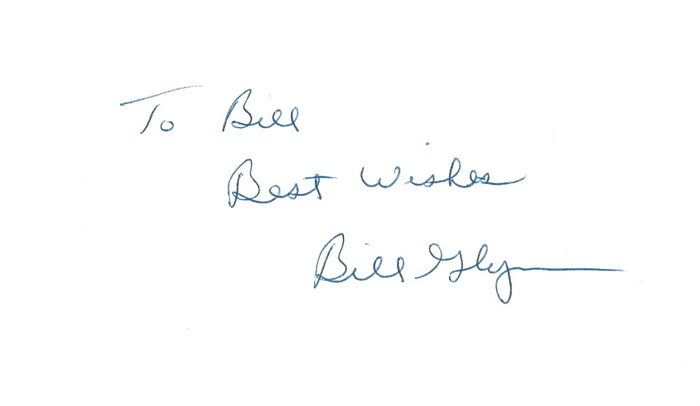 To Bill
Best Wishes
Bill Glynn